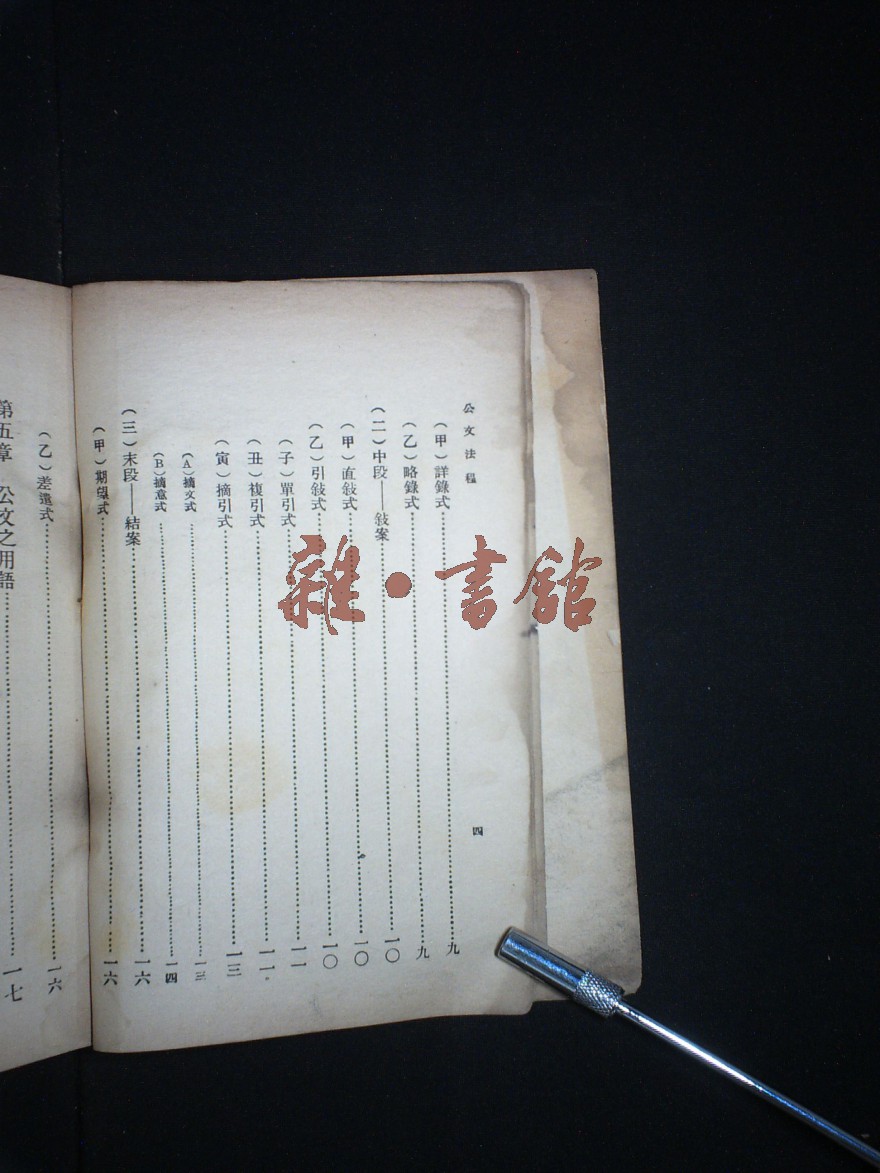 公文法程
四
(甲)詳錄式……九
(乙)略錄式……九
(二)中段——敍案……一〇
(甲)直敍式……一〇
(乙)引敍式……一〇
(子)單引式……一一
(丑)複引式……一一
(寅)摘引式……一三
(A)摘文式……一三
(B)摘意式……一四
(三)末段——結案……一六
(甲)期望式……一六
(乙)差遣式……一六
第五章 公文之用語……一七
雜·書館